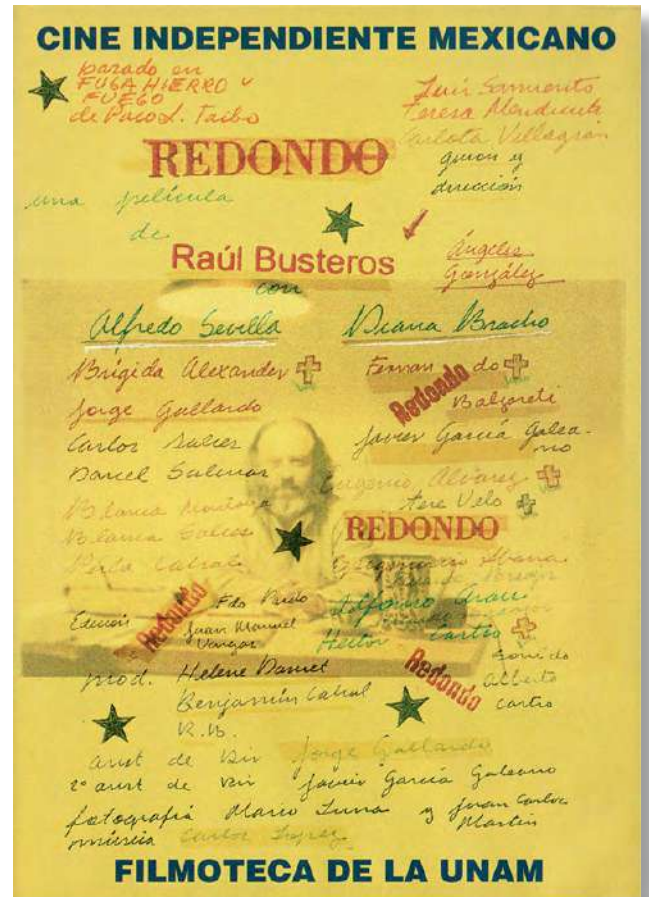 CINE INDEPENDIENTE MEXICANO
basado en
FUGA HIERRO Y
FUEGO
de Paco I. Taibo
Luis Sarmiento
Teresa Mendicuti
Carlota Villagrán
REDONDO
guion y
dirección
una película
de
Raúl Busteros
Ángeles
González
con
Alfredo Sevilla
Diana Bracho
Brígida Alexander
Fernan do
Redondo
Jorge Gallardo
Balzareti
Carlos
Javier García Galea-
no
Daniel Salinas
Eugenio Alvarez
Tere Velo
Blanca
Blanca
REDONDO
Perla Cabral
Redondo
Edición
Fdo Pardo
Alfonso Arau
Juan Manuel
Vargas
Hector Castro
sonido
prod.
Helene Damet
Redondo
Alberto
Castro
Benjamín Cabral
R.B.
asist de Dir Jorge Gallardo
2º asist de Dir Javier García Galeano
fotografía Mario Luna y Juan Carlos
Martín
música Carlos López
FILMOTECA DE LA UNAM